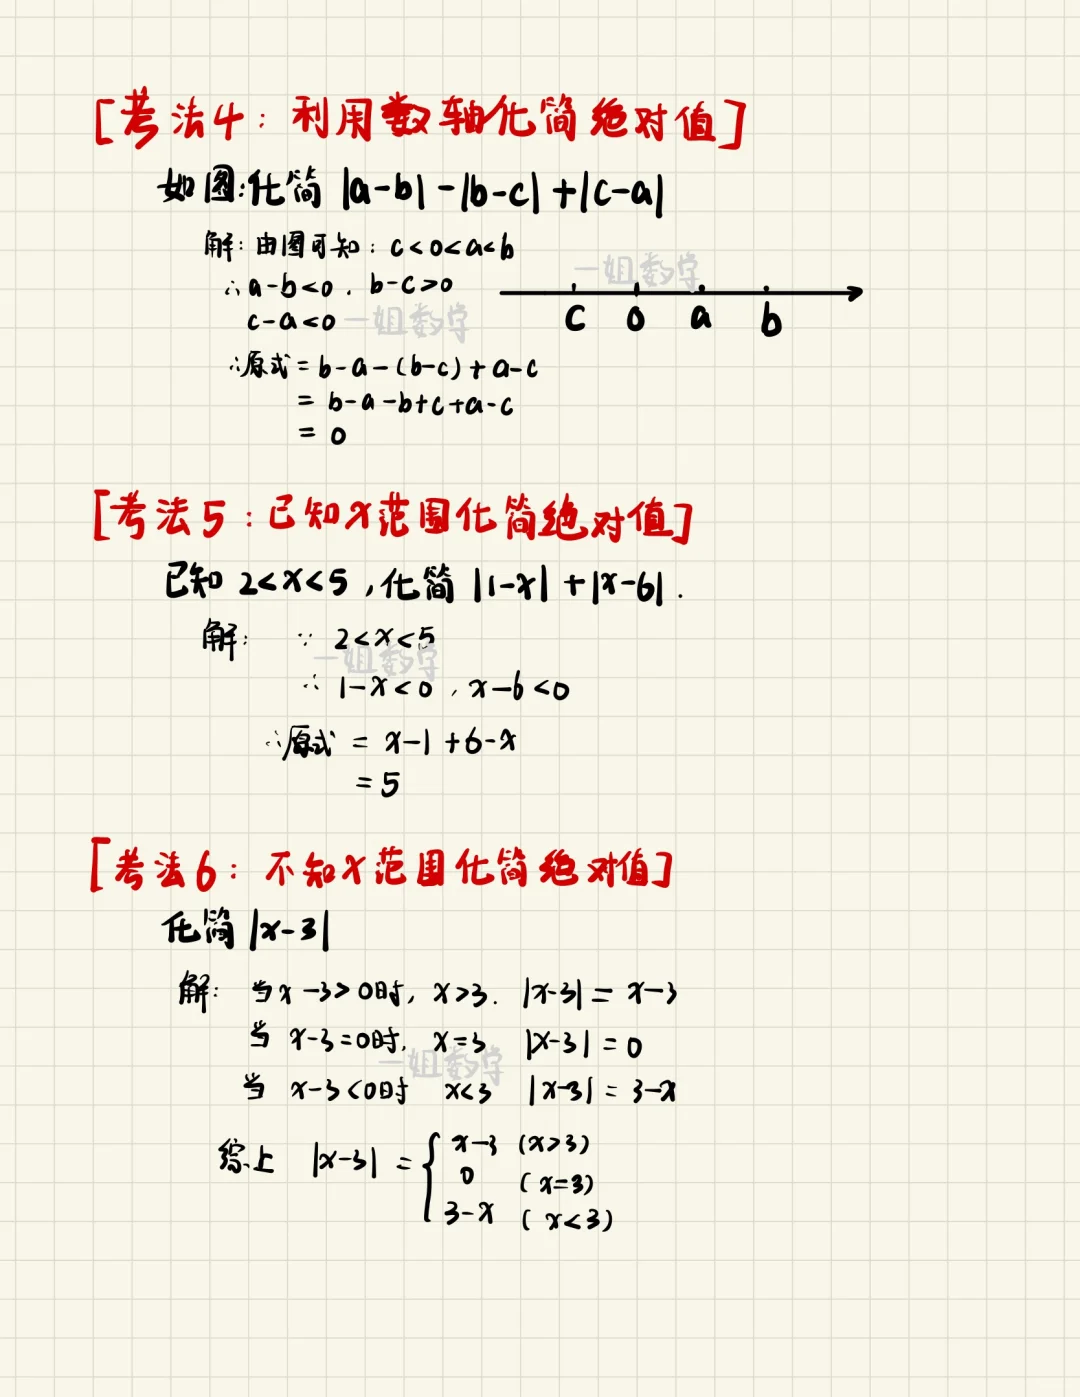 [考法4：利用数轴化简绝对值]
如图:化简 |a-b|-|b-c|+|c-a|
解：由图可知：c<0<a<b
∴a-b<0，b-c>0
一姐数学
c-a<0
一姐数学
c 0 a b
∴原式=b-a-(b-c)+a-c
=b-a-b+c+a-c
=0
[考法5：已知x范围化简绝对值]
已知 2<x<5，化简 |1-x|+|x-6|.
解： ∵ 2<x<5
一姐数学
∴ 1-x<0，x-6<0
∴原式 = x-1+6-x
=5
[考法6：不知x范围化简绝对值]
化简 |x-3|
解：当x-3>0时，x>3. |x-3|=x-3
当 x-3=0时， x=3 |x-3|=0
一姐数学
当 x-3<0时 x<3 |x-3|=3-x
综上 |x-3| = { x-3 (x>3)
0 (x=3)
3-x (x<3)